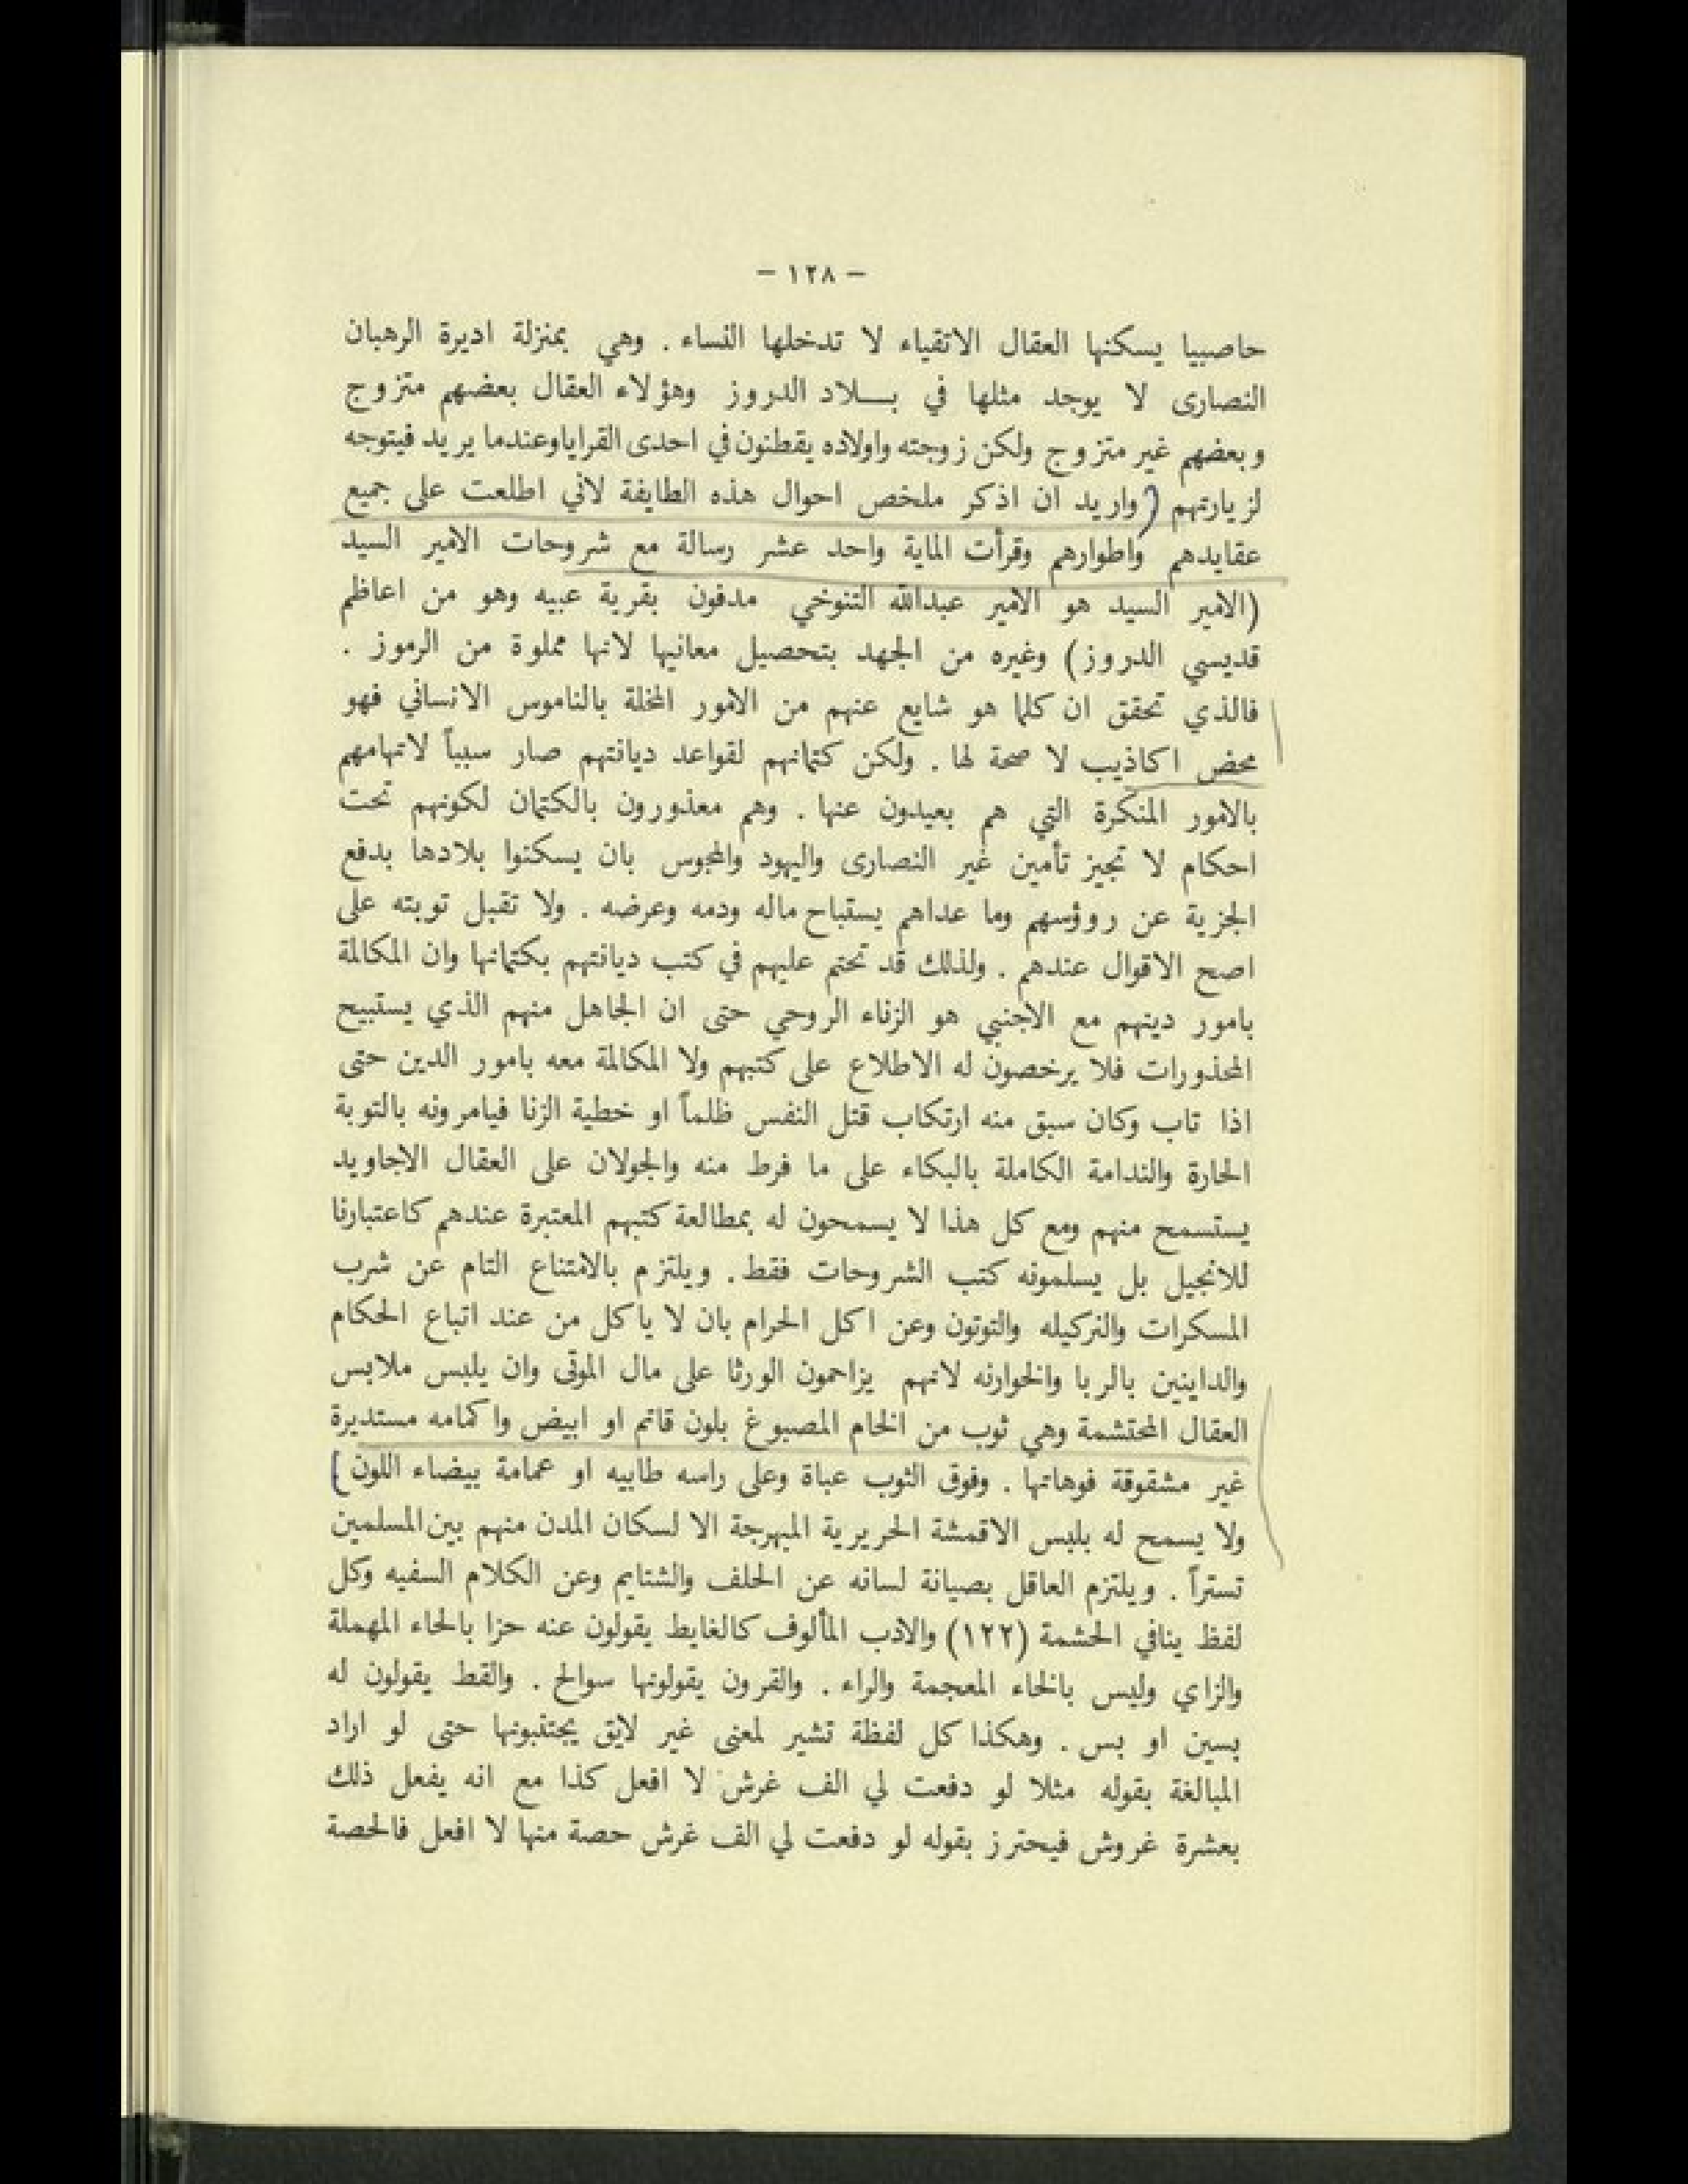 - ١٢٨ -
حاصبيا يسكنها العقال الاتقياء لا تدخلها النساء . وهي بمنزلة اديرة الرهبان
النصارى لا يوجد مثلها في بـلاد الدروز وهؤلاء العقال بعضهم متزوج
وبعضهم غير متزوج ولكن زوجته واولاده يقطنون في احدى القرايا وعندما يريد فيتوجه
لزيارتهم (واريد ان اذكر ملخص احوال هذه الطايفة لاني اطلعت على جميع
عقايدهم واطوارهم وقرأت الماية واحد عشر رسالة مع شروحات الامير السيد
(الامير السيد هو الامير عبدالله التنوخي مدفون بقرية عبيه وهو من اعاظم
قديسي الدروز) وغيره من الجهد بتحصيل معانيها لانها مملوة من الرموز .
فالذي تحقق ان كلما هو شايع عنهم من الامور المخلة بالناموس الانساني فهو
محض اكاذيب لا صحة لها . ولكن كتمانهم لقواعد ديانتهم صار سبباً لاتهامهم
بالامور المنكرة التي هم بعيدون عنها . وهم معذورون بالكتمان لكونهم تحت
احكام لا تجيز تأمين غير النصارى واليهود والمجوس بان يسكنوا بلادها بدفع
الجزية عن روؤسهم وما عداهم يستباح ماله ودمه وعرضه . ولا تقبل توبته على
اصح الاقوال عندهم . ولذلك قد تحتم عليهم في كتب ديانتهم بكتمانها وان المكالمة
بامور دينهم مع الاجنبي هو الزناء الروحي حتى ان الجاهل منهم الذي يستبيح
المحذورات فلا يرخصون له الاطلاع على كتبهم ولا المكالمة معه بامور الدين حتى
اذا تاب وكان سبق منه ارتكاب قتل النفس ظلماً او خطية الزنا فيامرونه بالتوبة
الحارة والندامة الكاملة بالبكاء على ما فرط منه والجولان على العقال الاجاويد
يستسمح منهم ومع كل هذا لا يسمحون له بمطالعة كتبهم المعتبرة عندهم كاعتبارنا
للانجيل بل يسلمونه كتب الشروحات فقط . ويلتزم بالامتناع التام عن شرب
المسكرات والنركيله والتوتون وعن اكل الحرام بان لا ياكل من عند اتباع الحكام
والداينين بالربا والخوارنه لانهم يزاحمون الورثا على مال الموتى وان يلبس ملابس
العقال المحتشمة وهي ثوب من الخام المصبوغ بلون قاتم او ابيض واكمامه مستديرة
غير مشقوقة فوهاتها . وفوق الثوب عباة وعلى راسه طابيه او عمامة بيضاء اللون]
ولا يسمح له بلبس الاقمشة الحريرية المبهرجة الا لسكان المدن منهم بين المسلمين
تستراً . ويلتزم العاقل بصيانة لسانه عن الحلف والشتايم وعن الكلام السفيه وكل
لفظ ينافي الحشمة (١٢٢) والادب المألوف كالغايط يقولون عنه حزا بالحاء المهملة
والزاي وليس بالخاء المعجمة والراء . والقرون يقولونها سوالح . والقط يقولون له
بسين او بس . وهكذا كل لفظة تشير لمعنى غير لايق يجتنبونها حتى لو اراد
المبالغة بقوله مثلا لو دفعت لي الف غرش لا افعل كذا مع انه يفعل ذلك
بعشرة غروش فيحترز بقوله لو دفعت لي الف غرش حصة منها لا افعل فالحصة